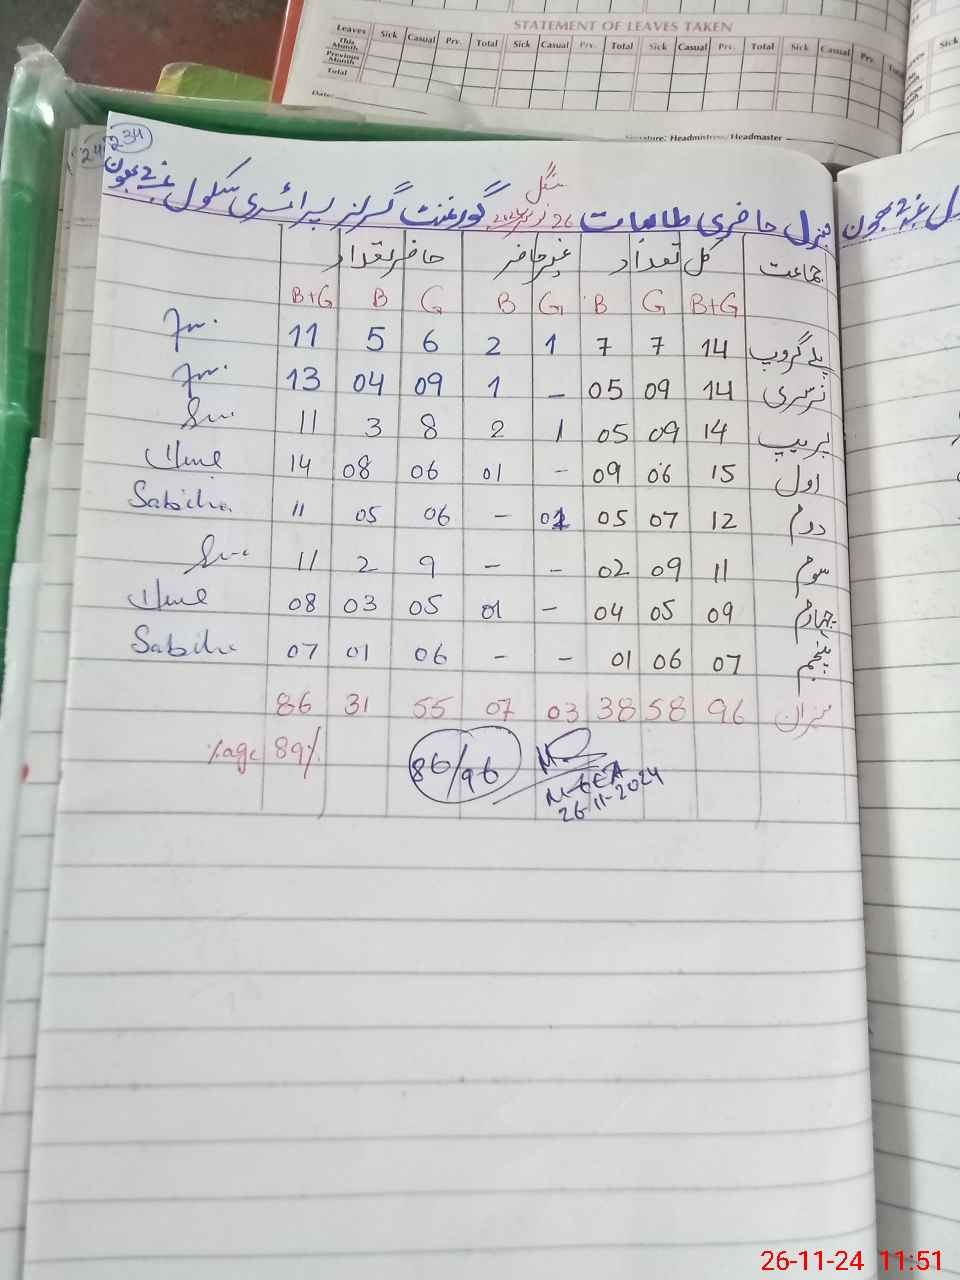 STATEMENT OF LEAVES TAKEN
Leaves Sick Casual Prv. Total Sick Casual Prv. Total Sick Casual Prv. Total Sick Casual Prv.
This Month
Previous Month
Total
Date:
Signature: Headmistress/Headmaster
234
منگل
جنرل حاضری طالبات 26 نومبر 2024 گورنمنٹ گرلز پرائمری سکول
جماعت کل تعداد غیر حاضر حاضر تعداد
B+G G B G B G B B+G
پلے گروپ 14 7 7 1 2 6 5 11
نرسری 14 09 05 - 1 09 04 13
پریپ 14 09 05 1 2 8 3 11
اول 15 06 09 - 01 06 08 14
دوم 12 07 05 01 - 06 05 11 Sabiha
سوم 11 09 02 - - 9 2 11
چہارم 09 05 04 - 01 05 03 08
پنجم 07 06 01 - - 06 01 07 Sabiha
میزان 96 58 38 03 07 55 31 86
%age 89%
86/96
26-11-2024
26-11-24 11:51